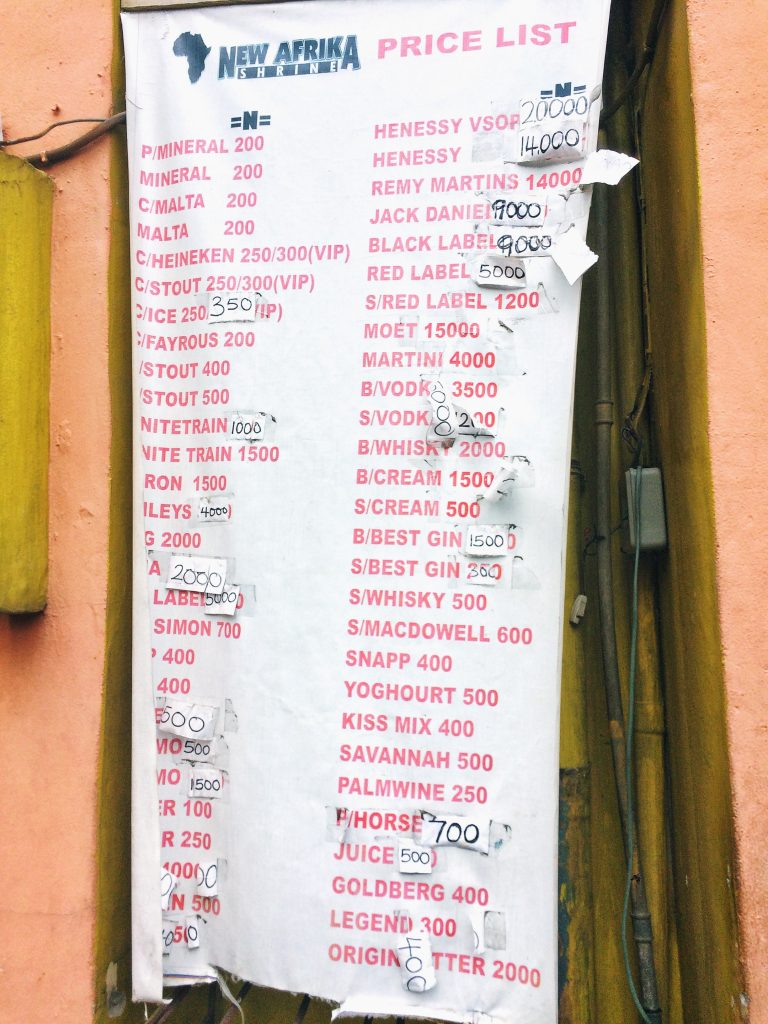 NEW AFRIKA
SHRINE
PRICE LIST
=N=
P/MINERAL 200
MINERAL 200
C/MALTA 200
MALTA 200
C/HEINEKEN 250/300(VIP)
C/STOUT 250/300(VIP)
C/ICE 250 350 IP)
/FAYROUS 200
/STOUT 400
/STOUT 500
NITETRAIN 1000
NITE TRAIN 1500
RON 1500
ILEYS 4000
G 2000
A 2000
LABEL 5000
SIMON 700
P 400
400
500
MO 500
MO 1500
ER 100
R 250
1000
N 500
50
=N=
HENESSY VSOP 20000
HENESSY 14.000
REMY MARTINS 14000
JACK DANIEL 9000
BLACK LABEL 9000
RED LABEL 5000
S/RED LABEL 1200
MOET 15000
MARTINI 4000
B/VODK 3500
S/VODK 200
B/WHISKY 2000
B/CREAM 1500
S/CREAM 500
B/BEST GIN 1500
S/BEST GIN 300
S/WHISKY 500
S/MACDOWELL 600
SNAPP 400
YOGHOURT 500
KISS MIX 400
SAVANNAH 500
PALMWINE 250
P/HORSE 700
JUICE 500
GOLDBERG 400
LEGEND 300
ORIGIN 400 TTER 2000